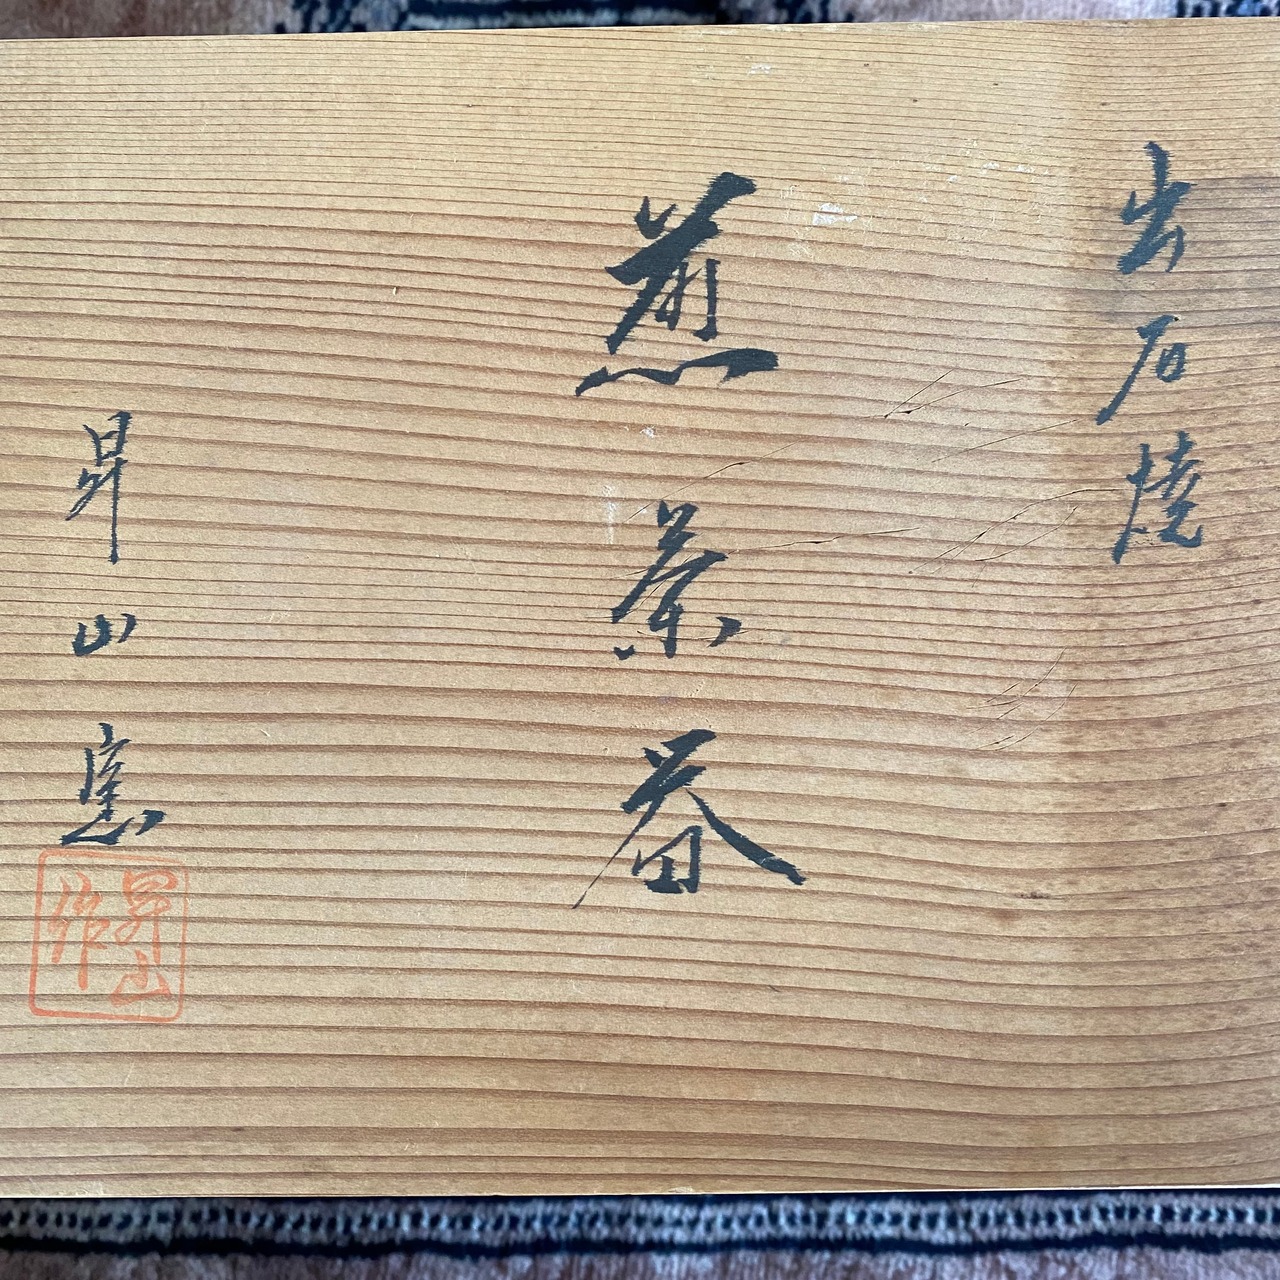 出石焼
煎茶器
昇山窯
昇山作